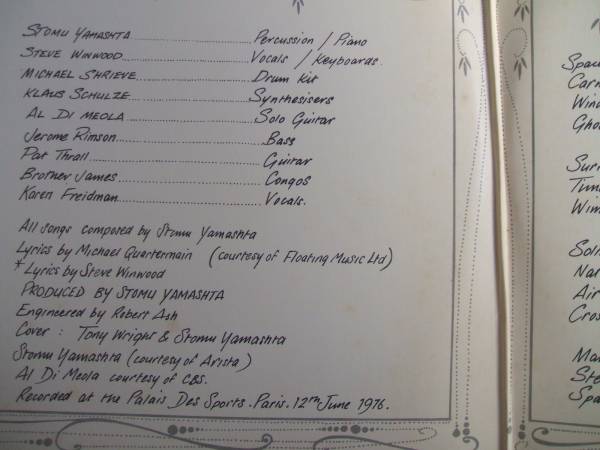 Stomu Yamashta........Percussion / Piano
Steve Winwood........Vocals / Keyboards.
Michael Shrieve........Drum Kit
Klaus Schulze........Synthesisers
Al Di Meola........Solo Guitar
Jerome Rimson........Bass
Pat Thrall........Guitar
Brother James........Congos
Karen Freidman........Vocals.
All songs composed by Stomu Yamashta
Lyrics by Michael Quartermain (courtesy of Floating Music Ltd)
* Lyrics by Steve Winwood
PRODUCED BY STOMU YAMASHTA
Engineered by Robert Ash
Cover : Tony Wright & Stomu Yamashta
Stomu Yamashta (courtesy of Arista)
Al Di Meola courtesy of CBS.
Recorded at the Palais Des Sports. Paris. 12th June 1976.
Spac
Carn
Wind
Gho
Surr
Time
Win
Solit
Nar
Air
Cros
Ma
Ste
Spa